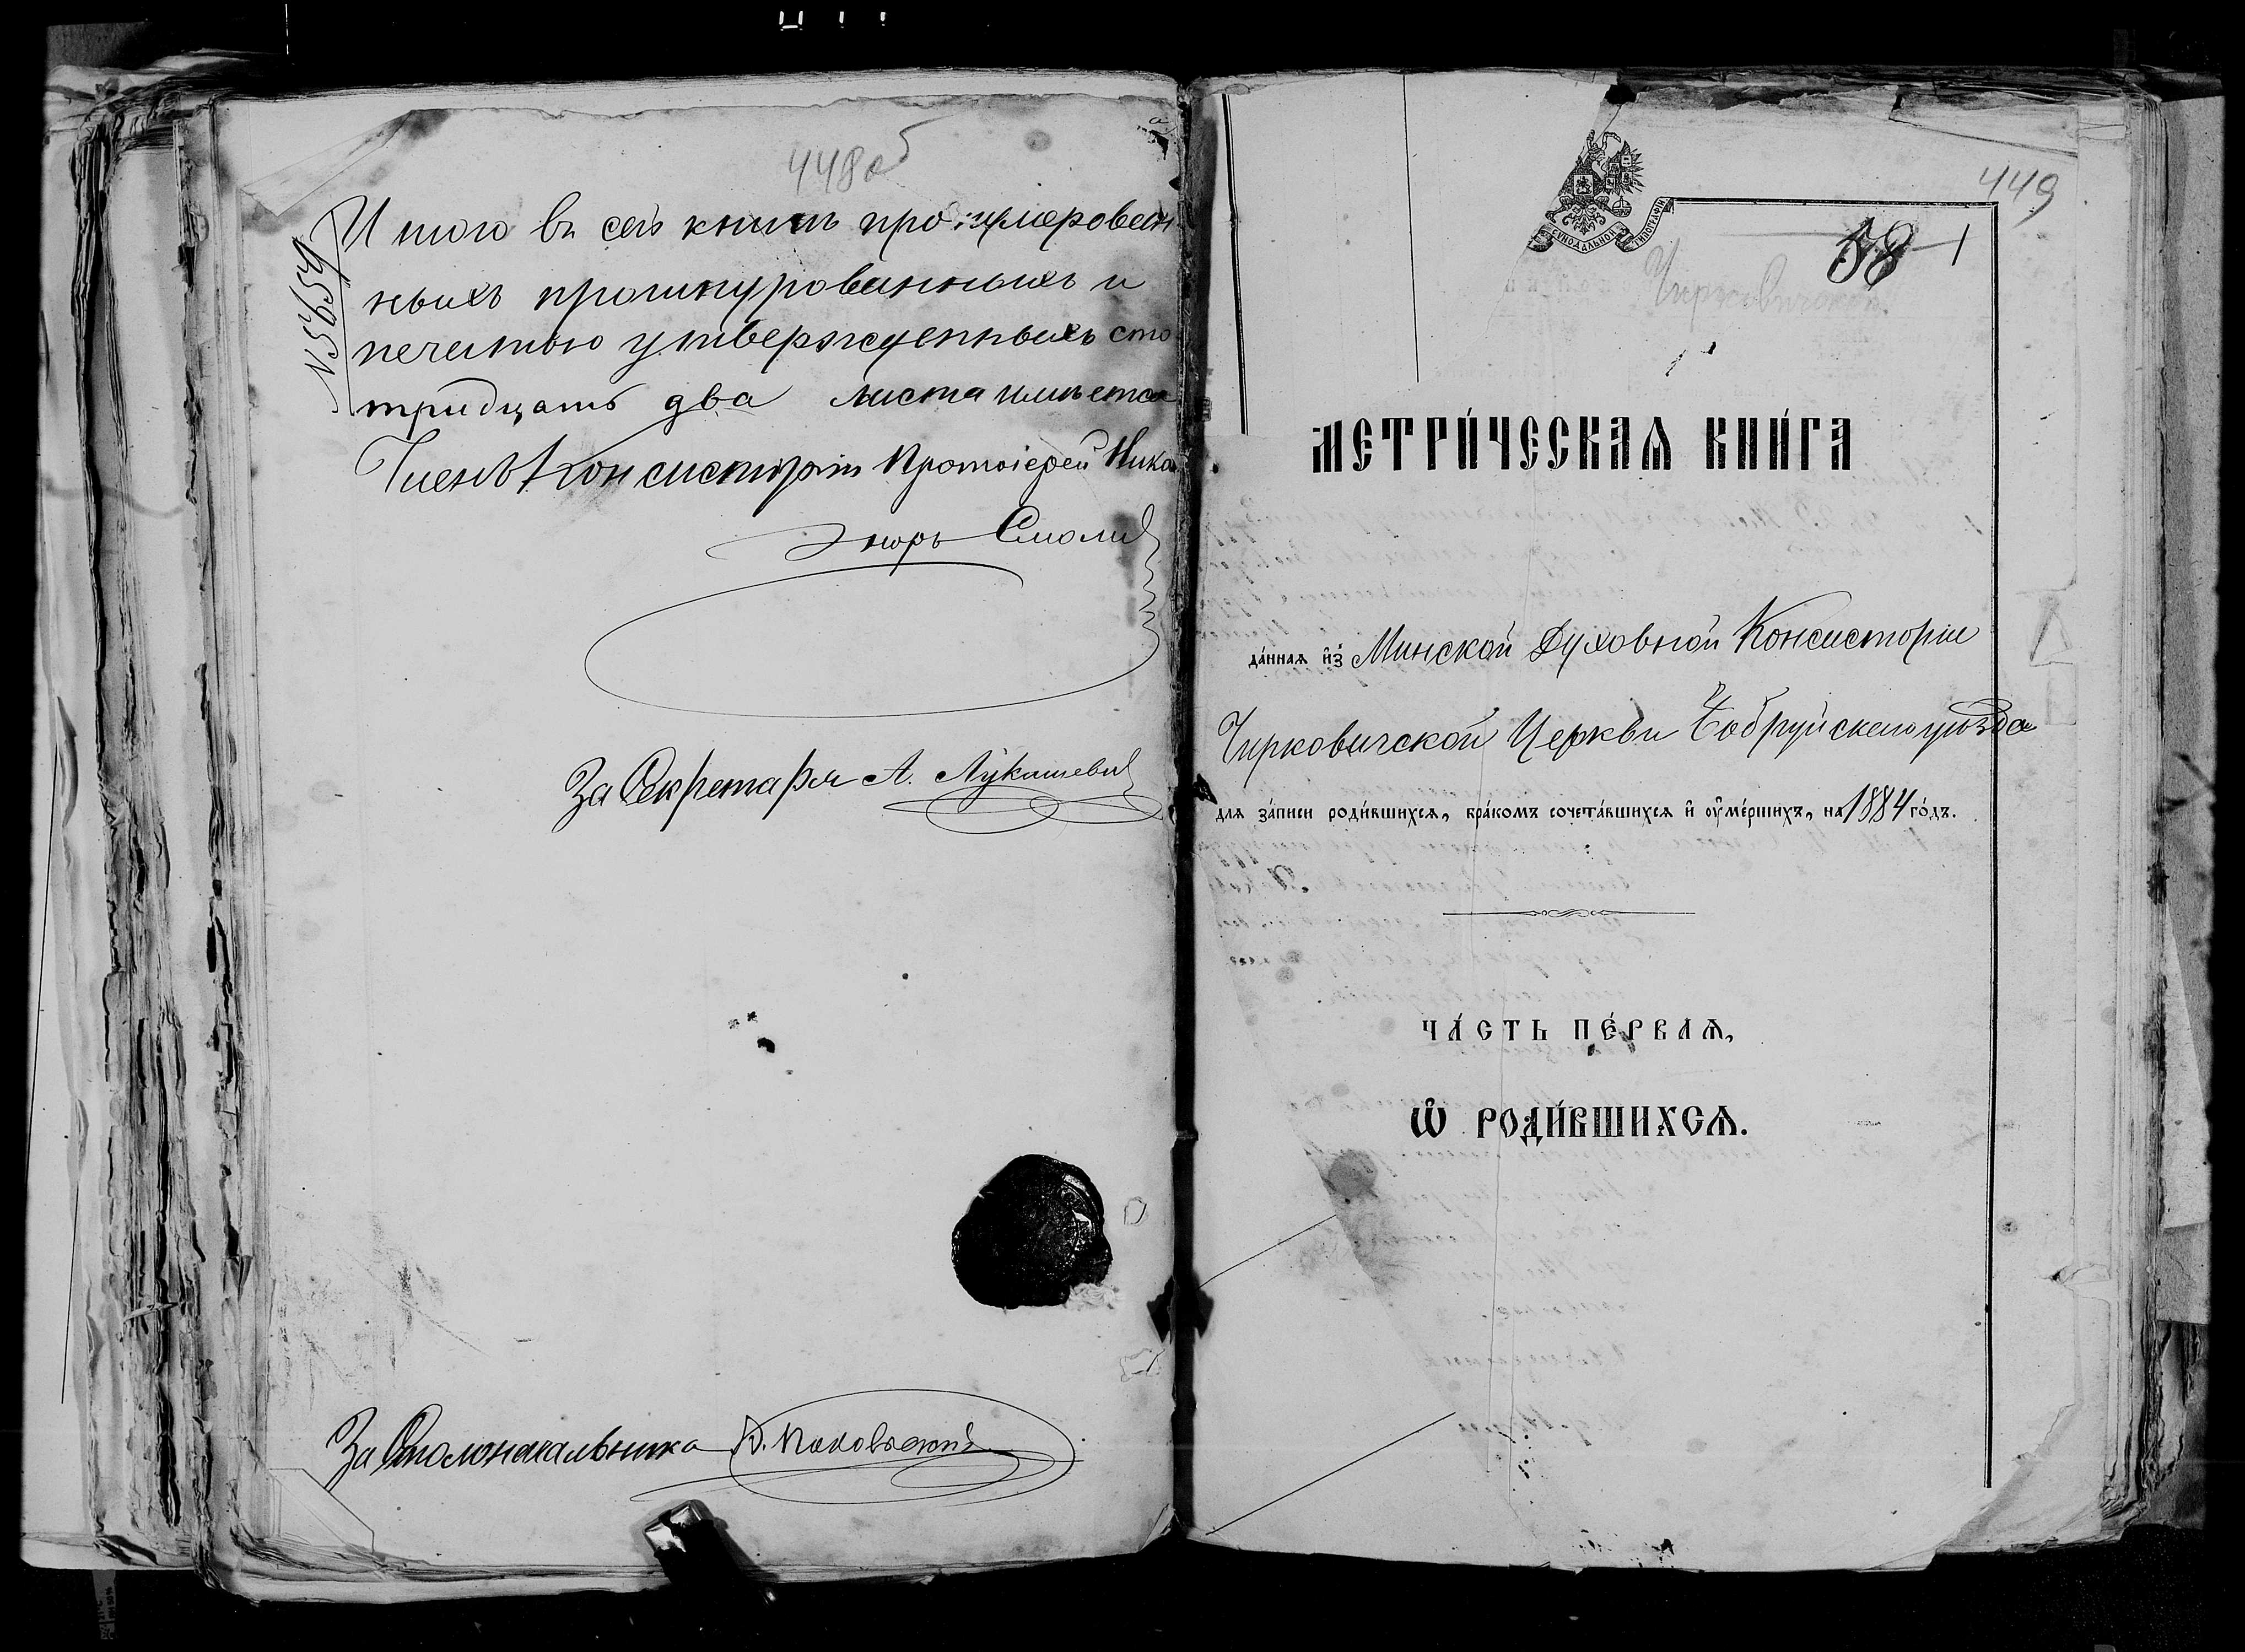 448 об
№ 5654
Итого въ сей книгѣ про:нумерован
ныхъ прошнурованныхъ и
печатью утвержденныхъ сто
тридцать два листа имѣется
Членъ Консисторіи Протоіерей Ника
норъ Смолич
За Секретаря А. Лукашевич
За Столоначальника
449
58
1
СУНОДАЛЬНОЙ ТИПОГРАФІИ
Чирковичской
МЕТРИ́ЧЕСКАѦ КНИ́ГА
да́ннаѧ и҆з̾ Минской Духовной Консисторіи
Чирковичской Церкви Бобруйскаго уѣзда
длѧ за́писи роди́вшихсѧ, бра́комъ сочета́вшихсѧ и҆ ᲂу҆ме́ршихъ, на 1884 го́дъ.
ЧА́СТЬ ПЕ́РВАѦ,
Ѽ РОДИ́ВШИХСѦ.